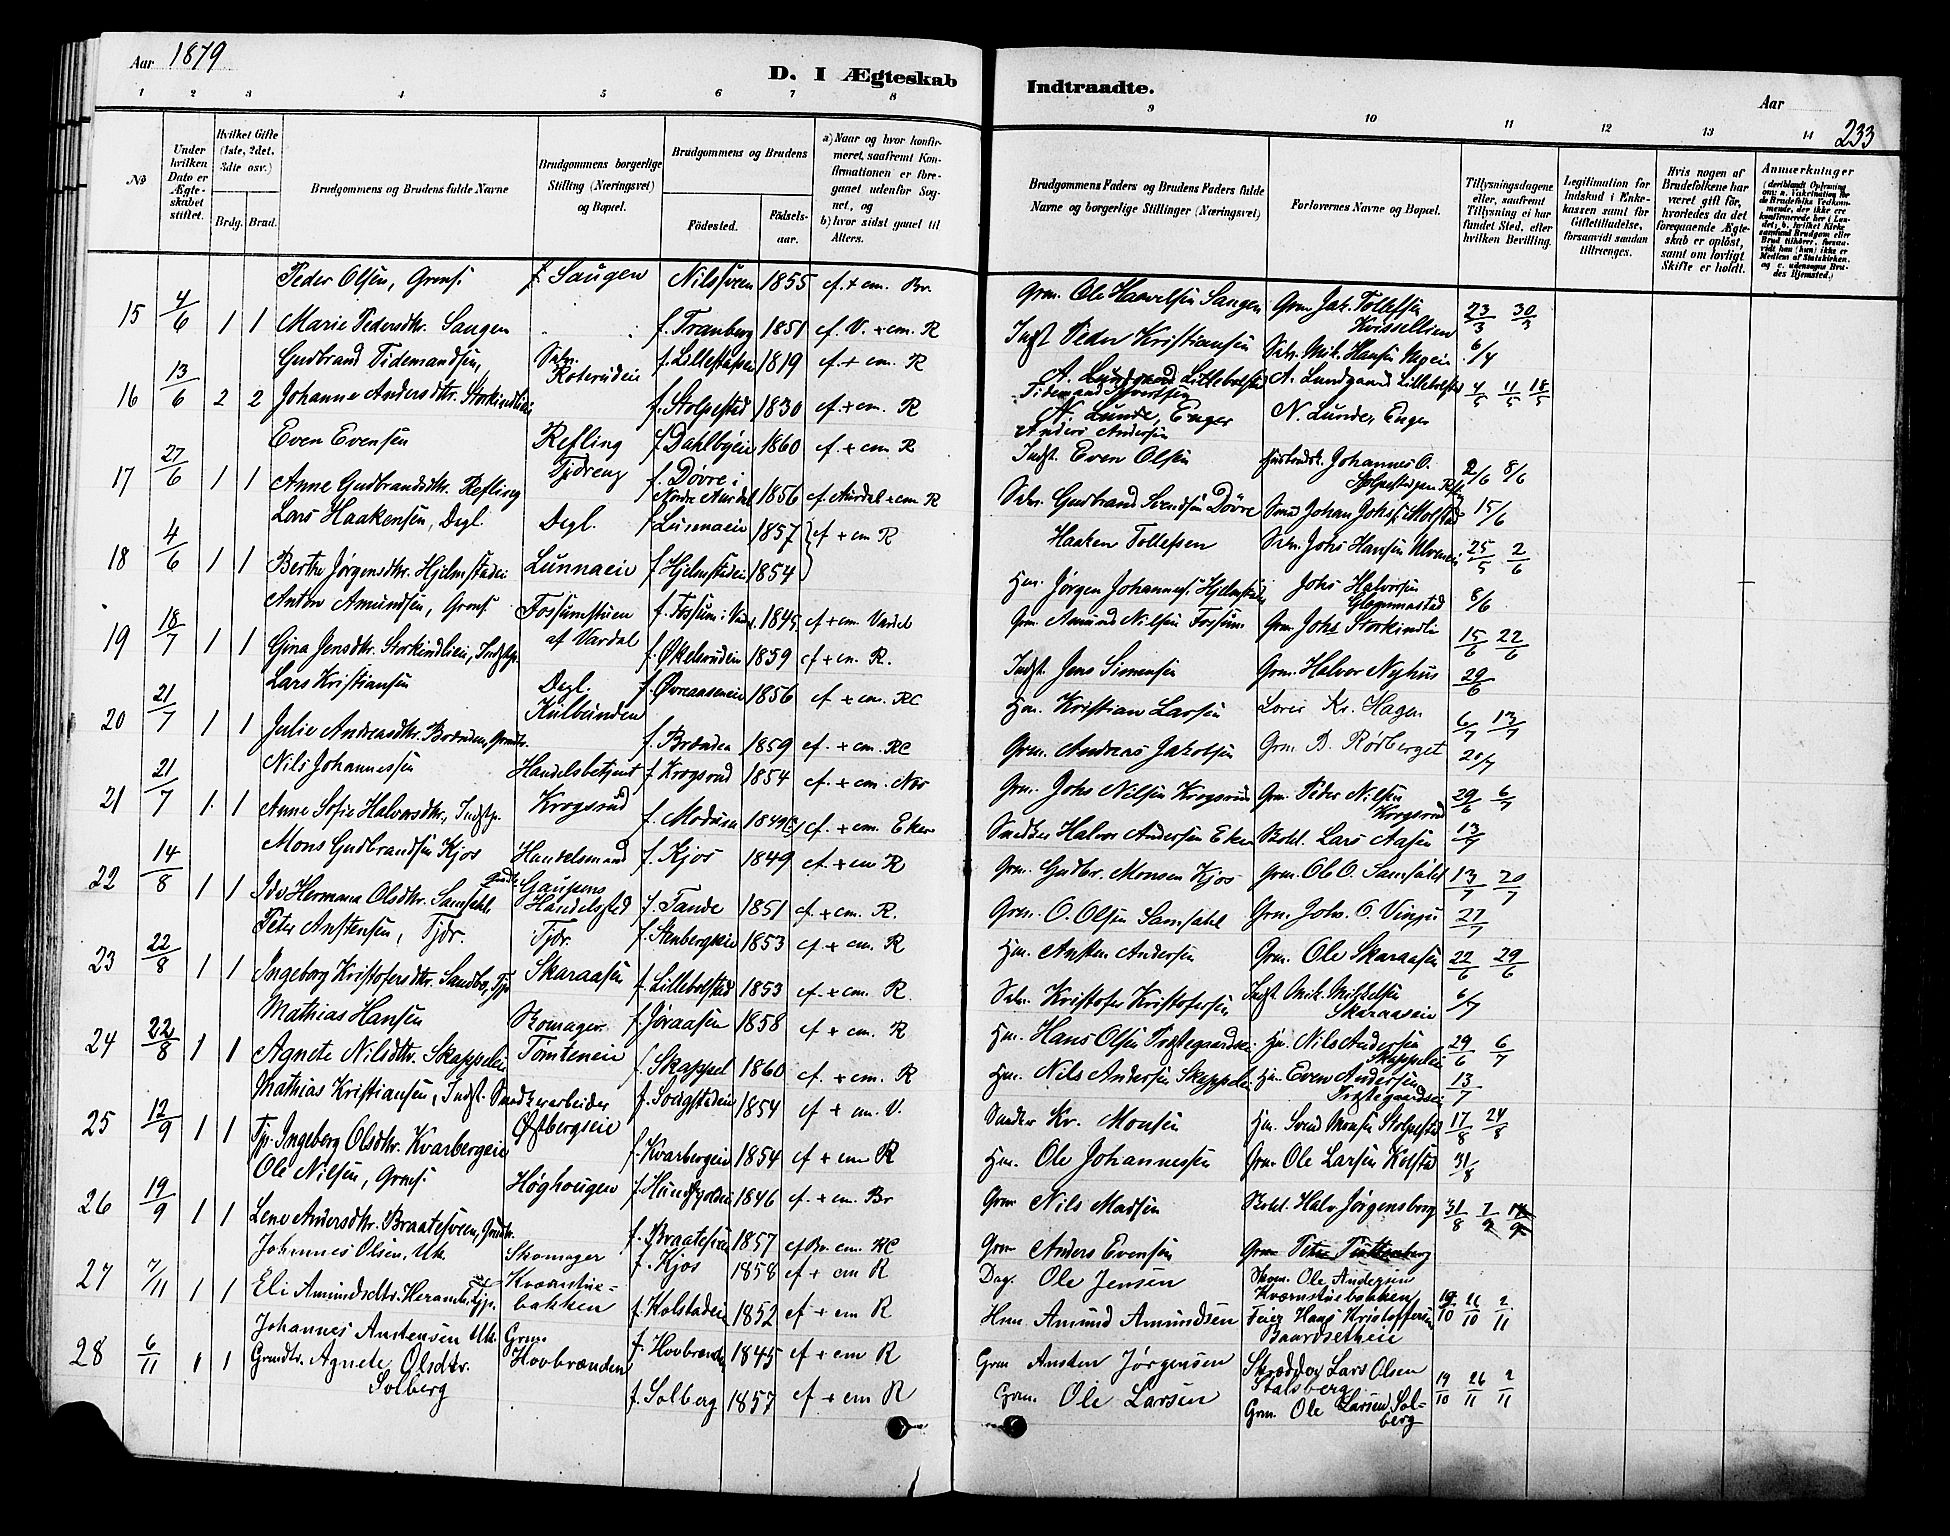 Aar 1879
D. I Ægteskab Indtraadte.
Aar
233
1 2 3 4 5 6 7 8 9 10 11 12 13 14
No
Under hvilken Dato er Ægteskabet stiftet.
Hvilket Gifte (1ste, 2det, 3dte osv.)
Brdg. Brud.
Brudgommens og Brudens fulde Navne
Brudgommens borgerlige Stilling (Næringsvei) og Bopæl.
Brudgommens og Brudens
Fødested. Fødselsaar.
a) Naar og hvor konfirmeret, saafremt Konfirmationen er foregaaet udenfor Sognet, og
b) hvor sidst gaaet til Alters.
Brudgommens Faders og Brudens Faders fulde Navne og borgerlige Stillinger (Næringsvei)
Forlovernes Navne og Bopæl.
Tillysningsdagene eller, saafremt Tillysning ei har fundet Sted, efter hvilken Bevilling.
Legitimation for Indskud i Enkekassen samt for Giftetilladelse, forsaavidt saadan tiltrænges.
Hvis nogen af Brudefolkene har været gift før, hvorledes da det foregaaende Ægteskab er opløst, samt om lovligt Skifte er holdt.
Anmærkninger
15 4/6 1 1 Peder Olsen, Grmf. f. Saugen Nilssveen 1855 cf. + cm. Br. Grm. Ole Haavelsen Saugen Grm. Joh. Tollefsen Krissellien 23/3 30/3
Marie Pedersdtr. Saugen f. Tranberg 1851 cf. V. + cm. R Indst Peder Kristiansen Selv. Mik. Hansen 6/4
16 13/6 2 2 Gudbrand Tidemandsen, Selv. Roterudeie f. Lillestuen 1819 cf. + cm. R Tidemand A. Lundgaard Lillebolsted 4/5 11/5 18/5
Johanne Andersdtr. Storkindlien f. Stolpestad 1830 cf. + cm. R Anders Andersen N. Lunde, Enger
17 27/6 1 1 Even Evensen Refling Tjdreng f. Dahlbyeie 1860 cf. + cm. R Indst. Even Olsen Johannes O. 2/6 8/6
Anne Gudbrandsdtr. Refling f. Døvre i Nordre Aurdal 1856 cf. Aurdal + cm. R Selv. Gudbrand Svendsen Døvre Smed Johan Johs. Molstad 15/6
18 4/6 1 1 Lars Haakensen, Degl. Degl. Lunnaeie f. Lunnaeie 1857 cf + cm R Haaken Tollefsen Selv. Johs Hansen 25/5 2/6
Berthe Jørgensdtr. Hjelmstadei f. Hjelmstadeie 1854 Hm. Jørgen Johannes. Hjelmstadei Johs Halvorsen Glommastad 8/6
19 18/7 1 1 Anton Amundsen, Grmf. Fossumstuen af Vardal f. Fossum i Vard. 1845 cf + cm. Vardal Grm. Amund Nilsen Fossum Grm. Johs Storkindli 15/6 22/6
Gina Jensdtr. Storkindlien, Indstp. f. Økelsrudeie 1859 cf + cm. R. Indst. Jens Simensen Grm. Halvor Nyhus 29/6
20 21/7 1 1 Lars Kristiansen Degl. Kulbunden f. Øvreaaseneie 1856 cf + cm. RC Hm. Kristian Larsen Kr. Hagen 6/7 13/7
Julie Andreasdtr. Brænden, Grmdtr. f. Brænden 1859 cf. + cm. RC Grm. Andreas Jakobsen Grm. B. Rødberget 20/7
21 21/7 1 1 Nils Johannessen Handelsbetjent Krogsrud f. Krogsrud 1854 cf. + cm. Nor Grm. Johs Nilsen Krogsrud Grm. Peder Nilsen Krogsrud 29/6 6/7
Anne Sofie Halvorsdtr., Indstp. f. Modum 1849 cf. + cm. Eker Snedker Halvor Andersen Eker Lars Aasen 13/7
22 14/8 1 1 Mons Gudbrandsen Kjos Handelsmand Gaupens Handelsted f. Kjos 1849 cf. + cm R Grm. Gudbr. Monsen Kjos Grm. Ole O. Samsahl 13/7 20/7
Ida Hermana Olsdtr. Samsahl f. Tande 1851 cf. + cm. R. Grm. O. Olsen Samsahl Grm. Johs. O. Vinju 27/7
23 22/8 1 1 Peter Anstensen, Tjdr. Tjdr. Skaraasen f. Stenbergeie 1853 cf + cm. R Hm. Ansten Andersen Grm. Ole Skaraasen 22/6 29/6
Ingeborg Kristofersdtr. Sandbo, Tjp f. Lillebolstad 1853 cf. + cm. R. Selv. Kristofer Kristofersen Indst. Mik. Mikkelsen Skaraaseie 6/7
24 22/8 1 1 Mathias Hansen Skomager Tomteneie f. Joraasen 1858 cf + cm. R Hm. Hans Olsen Prestegaardsei Hm. Nils Andersen Skappelei 29/6 6/7
Agnete Nilsdtr. Skappelei f. Skappel 1860 cf. + cm. R Hm. Nils Andersen Skappelei Hm. Even Andersen Prestegaardsei 13/7
25 12/9 1 1 Mathias Kristiansen, Indst. Snedkerarbeider Østbergseie f. Sougstadeie 1854 cf + cm. V. Snedker Kr. Monsen Hm. Svend Monsen Stolpestad 17/8 24/8
Tjp. Ingeborg Olsdtr. Kvarbergeie f. Kvarbergeie 1854 cf + cm R Hm. Ole Johannessen Grm Ole Larsen Kolstad 31/8
26 19/9 1 1 Ole Nilsen, Grmf. Høghougen f. Hundgjordei 1846 cf. + cm. Br Grm Nils Madsen Halv. Jørgensberg 31/8 7/9 14/9
Lene Andersdtr. Braatesveen, Grmdtr. f. Braatesveen 1857 cf Br. cm. RC Grm Anders Evensen Grm Peter Tuttenberg
27 7/11 1 1 Johannes Olsen, Uk. Skomager Kværnstuebakken f. Kjos 1858 cf + cm R Dag. Ole Jensen Skom. Ole Andersen Kværnstuebakken 19/10 26/10 2/11
Eli Amundsdtr. Heramb. Tjp. f. Kolstadeie 1852 cf + cm R Hm. Amund Amundsen Feier Hans Kristoffersen Baardsetheie
28 6/11 1 1 Johannes Anstensen Uk. Grm. Hovbrænden f. Hovbrænden 1845 cf + cm R Grm Ansten Jørgensen Skrædder Lars Olsen Stalsberg 19/10 26/11 2/11
Grmdtr. Agnete Olsdtr. Solberg f. Solberg 1857 cf + cm R Grm. Ole Larsen Grm. Ole Larsen Solberg